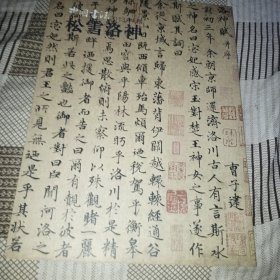 松雪洛神
洛神賦 并序
曹子建
初三年余朝京師還濟洛川古人有言斯水
神名曰宓妃感宋玉對楚王神女之事遂作
斯賦其詞曰
京域言歸東藩背伊闕越轘轅經通谷
既西傾車殆馬煩爾迺稅駕乎蘅皋
田容與乎陽林流眄乎洛川於是精
焉思散俯則未察仰以殊觀睹一麗
畔迺援御者而告之曰爾有覿於彼者
斯若此之豔也御者對曰臣聞河洛之
名曰宓妃然則君王之所見無迺是乎其狀若